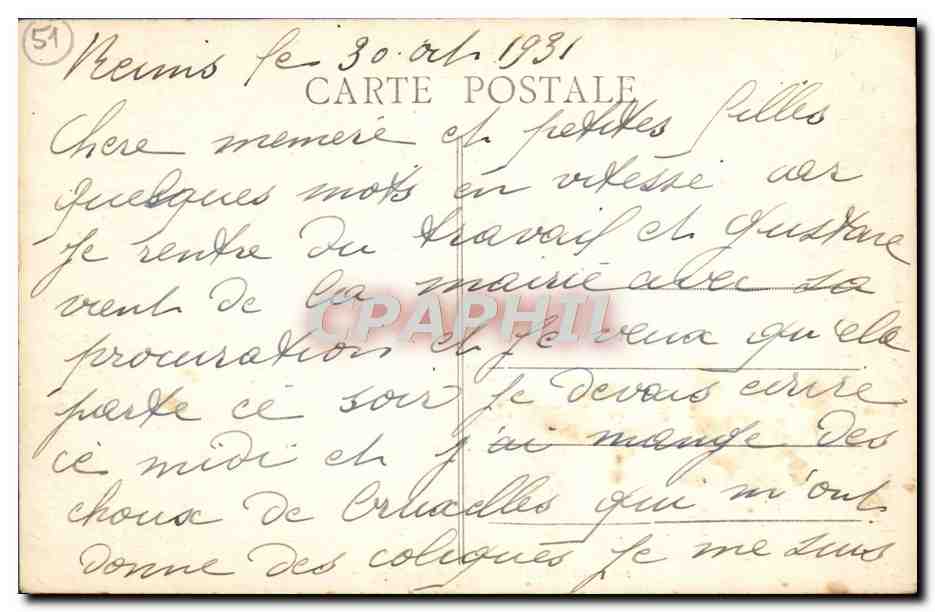 51
Reims le 30 oct 1931
CARTE POSTALE
Chere memere et petites filles
quelques mots en vitesse car
Je rentre du travail et Gustave
vient de la mairie avec sa
procuration et Je veux qu'ela
parte ce soir Je devais ecrire
ce midi et j'ai mange des
choux de Bruxelles qui m'ont
donne des coliques Je me suis
CPAPHIL